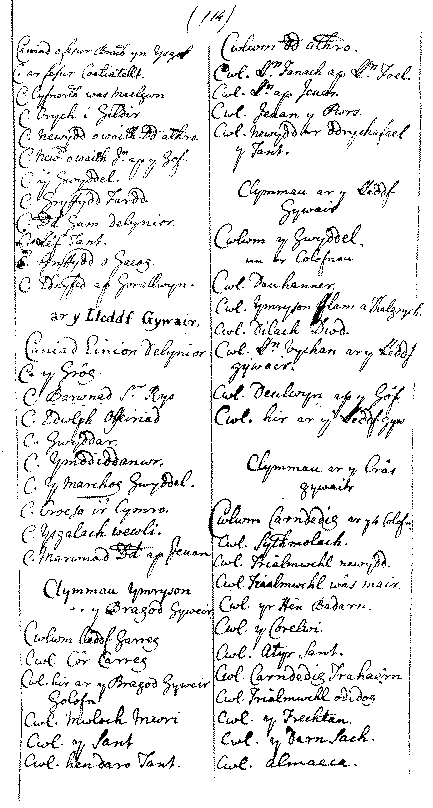 (114)
Caniad o fesur Braib yn Ysgol
C. ar fesur Coetiatellt.
C. Cyfnorth was maelgwn
C. brych i Gildir
C. newydd o waith Dd athro
C. New. o waith Jn ap y Gof.
C. y Gwyddel.
C. Gryffydd Fardd
C. Dd Gam delynior.
C. Llef Tant.
C. Gruffydd
C. Ddyfod ap Gorollwyn.
ar y Lleddf Gywair,
Caniad Einion Delynior
C. y Grôg
C. Barwnad Sr Rys
C. Edwlph Offeiriad
C. Gwyddar.
C. Ymddiddanwr.
C. y Marchog Gwyddel.
C. Croeso i'r Cymro.
C. Ysgalach wewli.
C. Marwnad Dd ap Jeuan
Clymmau Ymryson
y Bragod Gyweir
Cwlwm Lleddf Garreg
Cwl. Côr Carreg
Cwl. hir ar y Bragod Gyweir
Golofn
Cwl. Mwloch Mwri
Cwl. y Sant
Cwl. hen daro Tant.
Cwlwm Dd athro.
Cwl. Ln Fanach ap Ln Foel.
Cwl. Ln ap Jeuan.
Cwl. Jeuan y Pwrs.
Cwl. Newydd ar Ddrychafael
y Tant.
Clymmau ar y Lleddf
Gywair
Cwlwm y Gwyddel.
un ar Colofnau
Cwl. Dauhanner.
Cwl. Ymryson Flam a Thalgrych.
Cwl. Dilach Ddod.
Cwl. Ln Vychan ar y Lleddf
gywaer.
Cwl. Deulwyn ap y Gôf
Cwl. hir ar y Lleddf Gyw
Clymmau ar y Crâs
gywair
Cwlwm Carndedig ar y 4 Colofn.
Cwl. Sythmolach.
Cwl. Trialmwchl newydd.
Cwl. Trialmwchl wâs mair.
Cwl. yr Hen Badarn.
Cwl. y Corelwi.
Cwl. Atyr Sant.
Cwl. Carndedig Trahaûrn
Cwl. Trialmwchl odidog
Cwl. y Frechtan.
Cwl. y Barn Sach.
Cwl. almaeca.